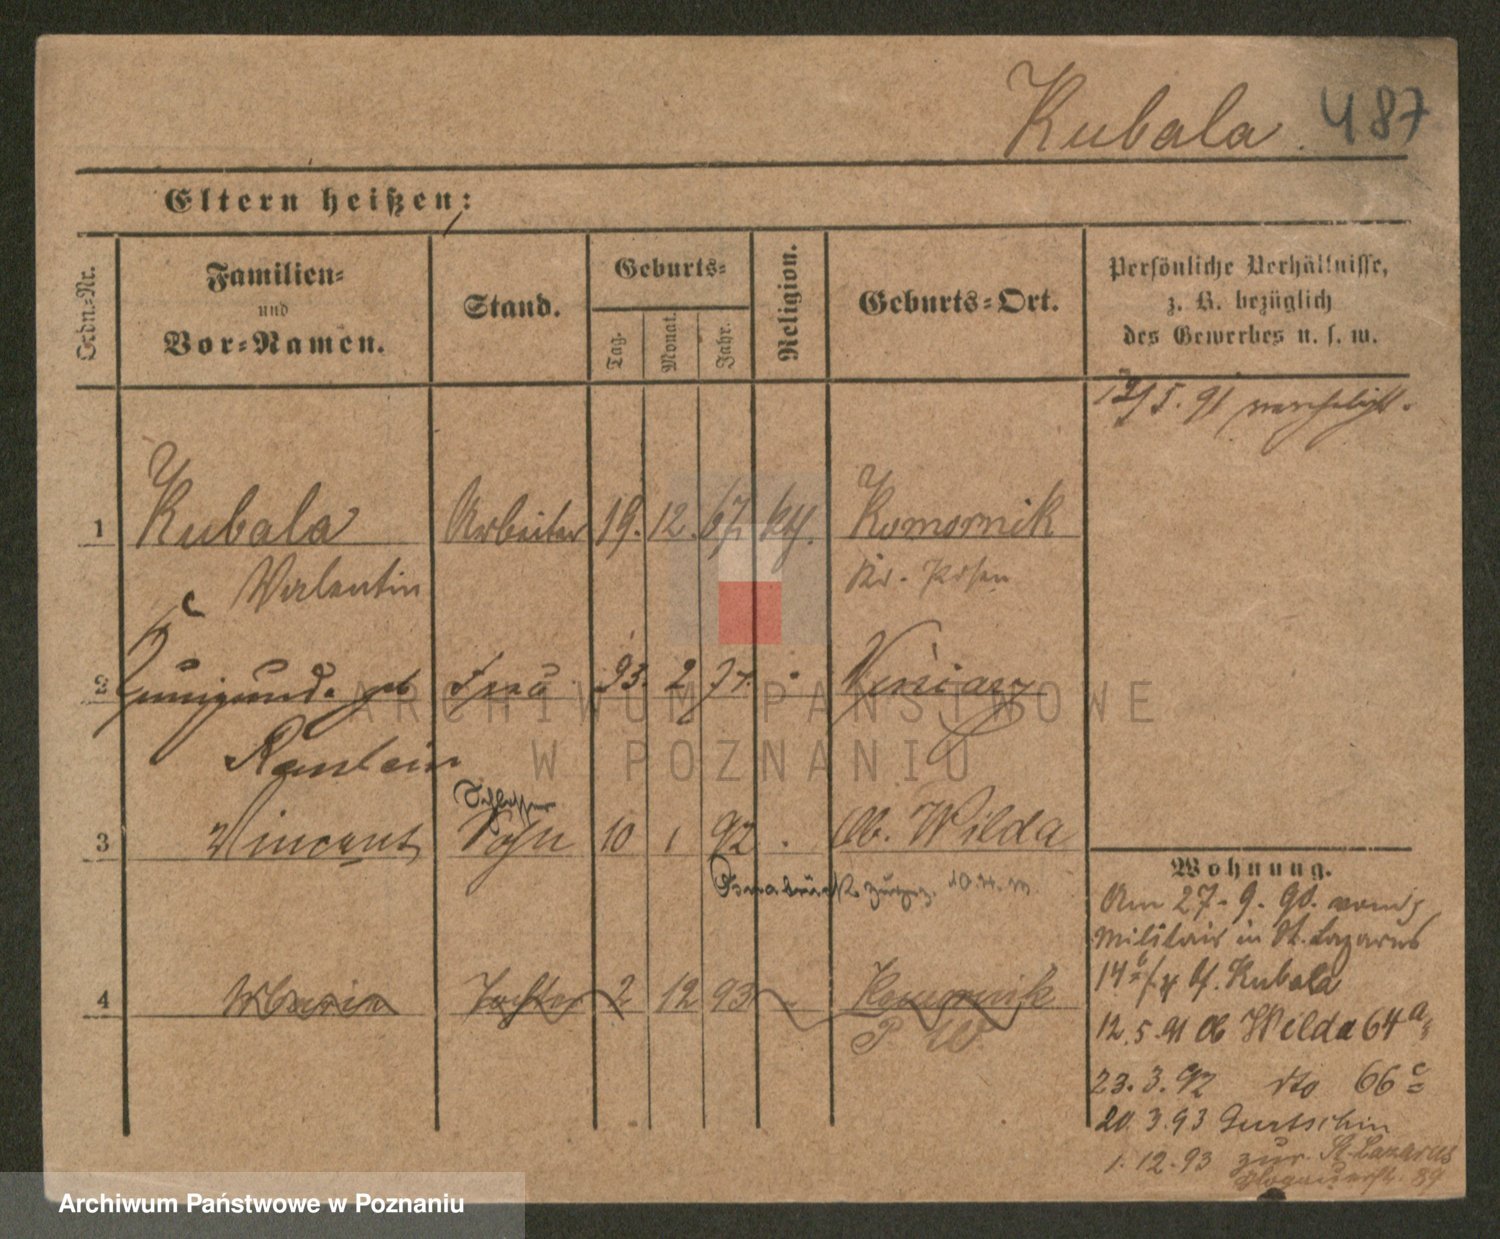 Kubala. 487
Eltern heißen:
Ordn.-Nr.
Familien-
und
Vor-Namen.
Stand.
Geburts-
Tag.
Monat.
Jahr.
Religion.
Geburts-Ort.
Persönliche Verhältnisse,
z. B. bezüglich
des Gewerbes u. s. w.
12/5. 91 verehelicht.
1 Kubala Arbeiter 19. 12. 67. kth. Komornik
Valentin Kr. Posen
2 Kunigunde geb Frau 2 71.
3 Vincent Sohn 10 1 92 . Ob. Wilda
Schlosser
Osnabrück
4 Tochter 2 12 93 Komornik
P. W.
Wohnung.
Am 27. 9. 90. vom
Militair in St. Lazarus
14 b. Kubala
12. 5. 91 Ob Wilda 64 a
23. 3. 92 dto 66 c
20. 3. 93 Gurtschin
1. 12. 93 zur. St. Lazarus
Glogauerstr. 89
ARCHIWUM PAŃSTWOWE
W POZNANIU
Archiwum Państwowe w Poznaniu